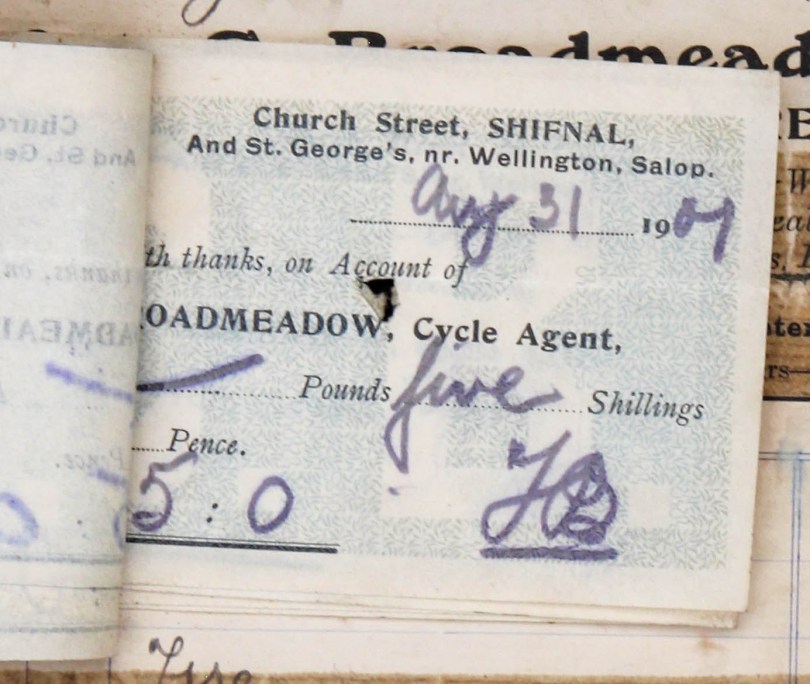 G. Broadmead
Church Street, SHIFNAL,
And St. George's, nr. Wellington, Salop.
Aug 31 1907
th thanks, on Account of
OADMEADOW, Cycle Agent,
Pounds five Shillings
Pence.
5 : 0